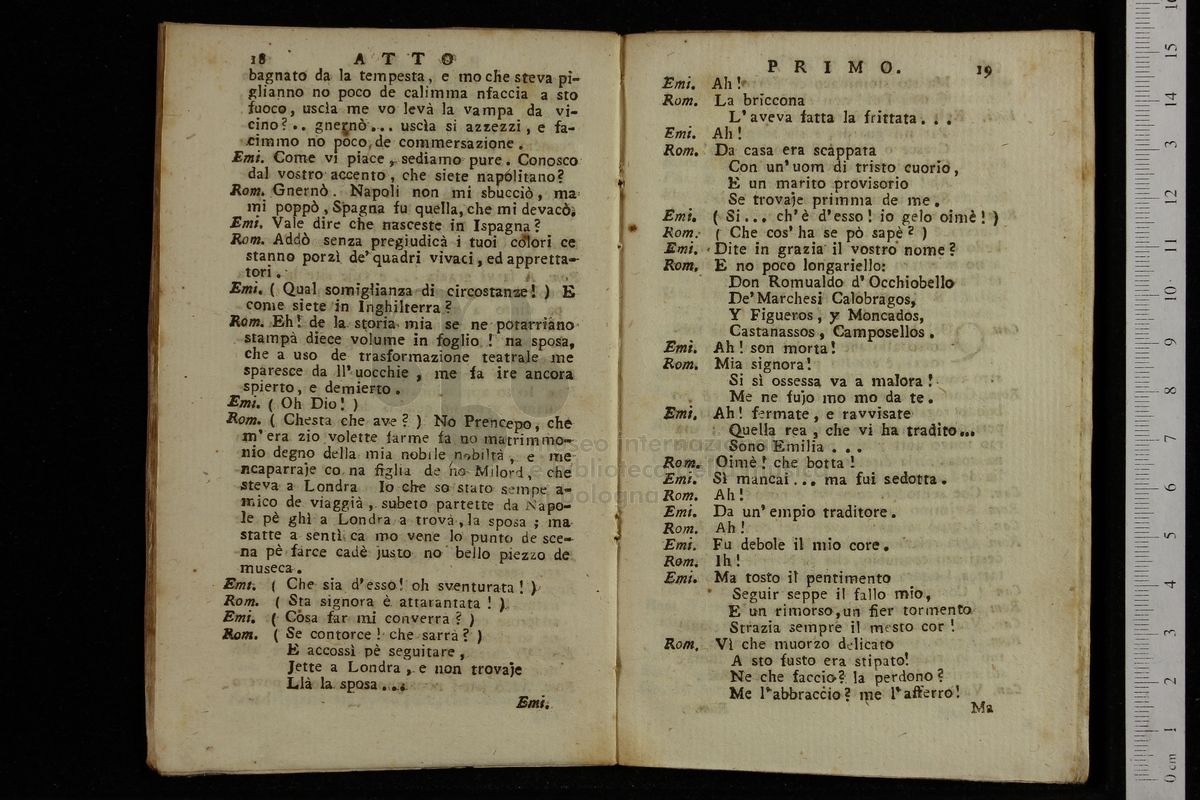 18 ATTO
bagnato da la tempesta, e mo che steva pi-
glianno no poco de calimma nfaccia a sto
fuoco, uscìa me vo levà la vampa da vi-
cino?.. gnernò... uscìa si azzezzi, e fa-
cimmo no poco de commersazione.
Emi. Come vi piace, sediamo pure. Conosco
dal vostro accento, che siete napolitano?
Rom. Gnernò. Napoli non mi sbucciò, ma
mi poppò, Spagna fu quella, che mi devacò.
Emi. Vale dire che nasceste in Ispagna?
Rom. Addò senza pregiudicà i tuoi colori ce
stanno porzì de' quadri vivaci, ed appretta-
tori.
Emi. ( Qual somiglianza di circostanze! ) E
come siete in Inghilterra?
Rom. Eh! de la storia mia se ne potarriano
stampà diece volume in foglio! na sposa,
che a uso de trasformazione teatrale me
sparesce da ll' uocchie, me fa ire ancora
spierto, e demierto.
Emi. ( Oh Dio! )
Rom. ( Chesta che ave? ) No Prencepo, che
m'era zio volette farme fa no matrimmo-
nio degno della mia nobile nobiltà, e me
ncaparraje co na figlia de no Milord, che
steva a Londra Io che so stato sempe a-
mico de viaggià, subeto partette da Napo-
le pè ghì a Londra a trovà, la sposa; ma
statte a sentì ca mo vene lo punto de sce-
na pè farce cadè justo no bello piezzo de
museca.
Emi. ( Che sia d'esso! oh sventurata! )
Rom. ( Sta signora è attarantata! )
Emi. ( Cosa far mi converra? )
Rom. ( Se contorce! che sarrà? )
E accossì pè seguitare,
Jette a Londra, e non trovaje
Llà la sposa....
Emi.
PRIMO. 19
Emi. Ah!
Rom. La briccona
L'aveva fatta la frittata...
Emi. Ah!
Rom. Da casa era scappata
Con un'uom di tristo cuorio,
E un marito provisorio
Se trovaje primma de me.
Emi. ( Si... ch'è d'esso! io gelo oimè! )
Rom. ( Che cos'ha se pò sapè? )
Emi. Dite in grazia il vostro nome?
Rom. E no poco longariello:
Don Romualdo d'Occhiobello
De'Marchesi Calobragos,
Y Figueros, y Moncados,
Castanassos, Camposellos.
Emi. Ah! son morta!
Rom. Mia signora!
Si sì ossessa va a malora!
Me ne fujo mo mo da te.
Emi. Ah! fermate, e ravvisate
Quella rea, che vi ha tradito...
Sono Emilia...
Rom. Oimè! che botta!
Emi. Sì mancai... ma fui sedotta.
Rom. Ah!
Emi. Da un'empio traditore.
Rom. Ah!
Emi. Fu debole il mio core.
Rom. Ih!
Emi. Ma tosto il pentimento
Seguir seppe il fallo mio,
E un rimorso, un fier tormento
Strazia sempre il mesto cor!
Rom. Vì che muorzo delicato
A sto fusto era stipato!
Ne che faccio? la perdono?
Me l'abbraccio? me l'afferro!
Ma